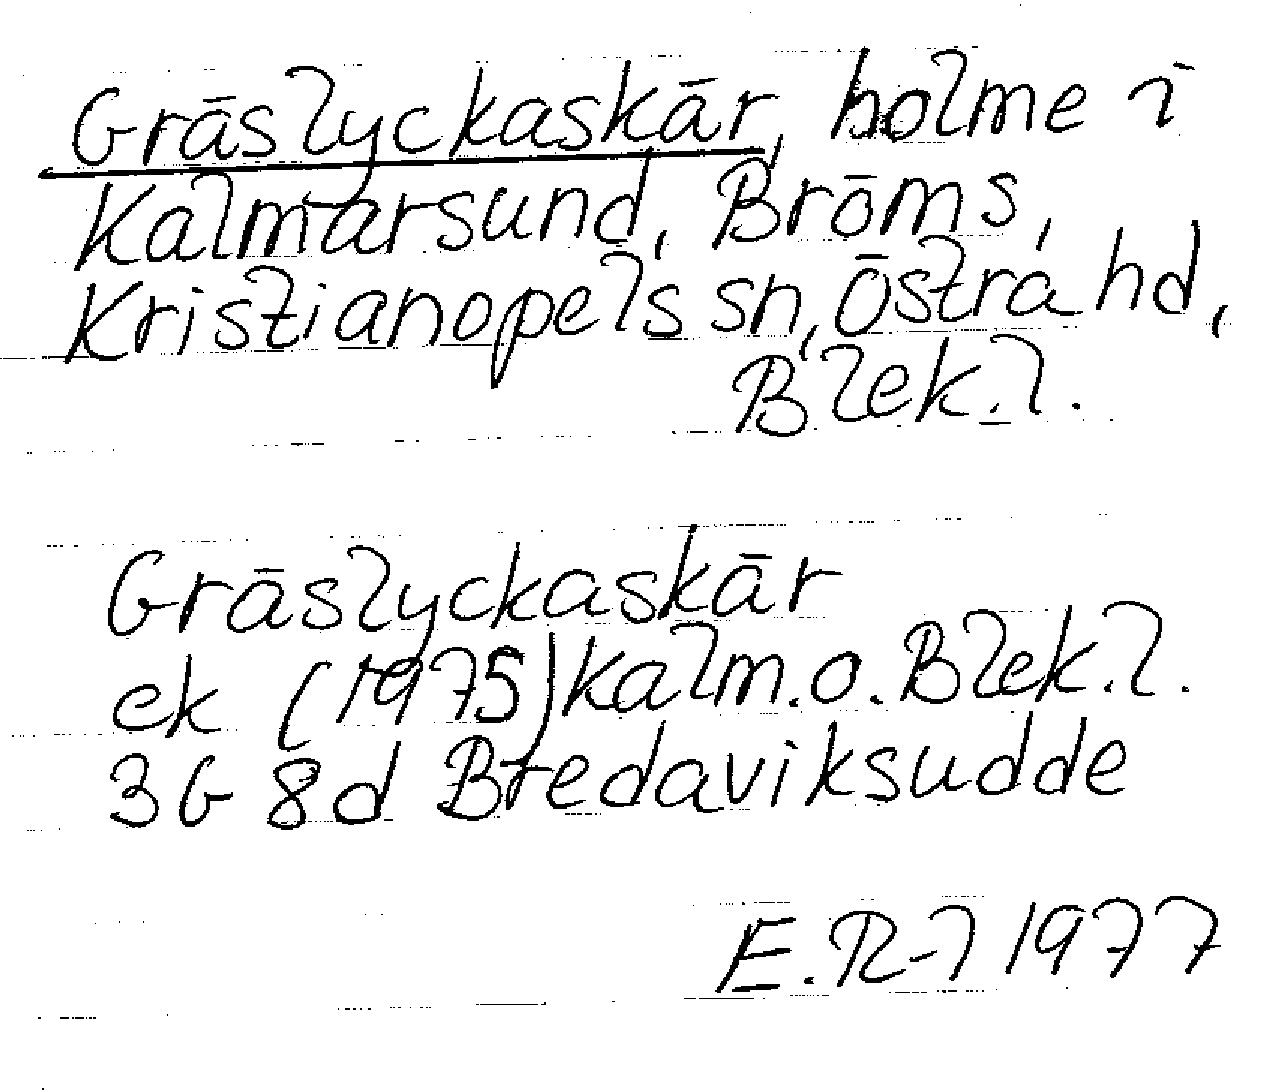 Gräslyckaskär, holme i
Kalmarsund, Bröms,
Kristianopels sn, Östra hd,
Blek.l.
Gräslyckaskär
ek (1975) Kalm.o.Blek.l.
3G 8d Bredaviksudde
E.R-l 1977